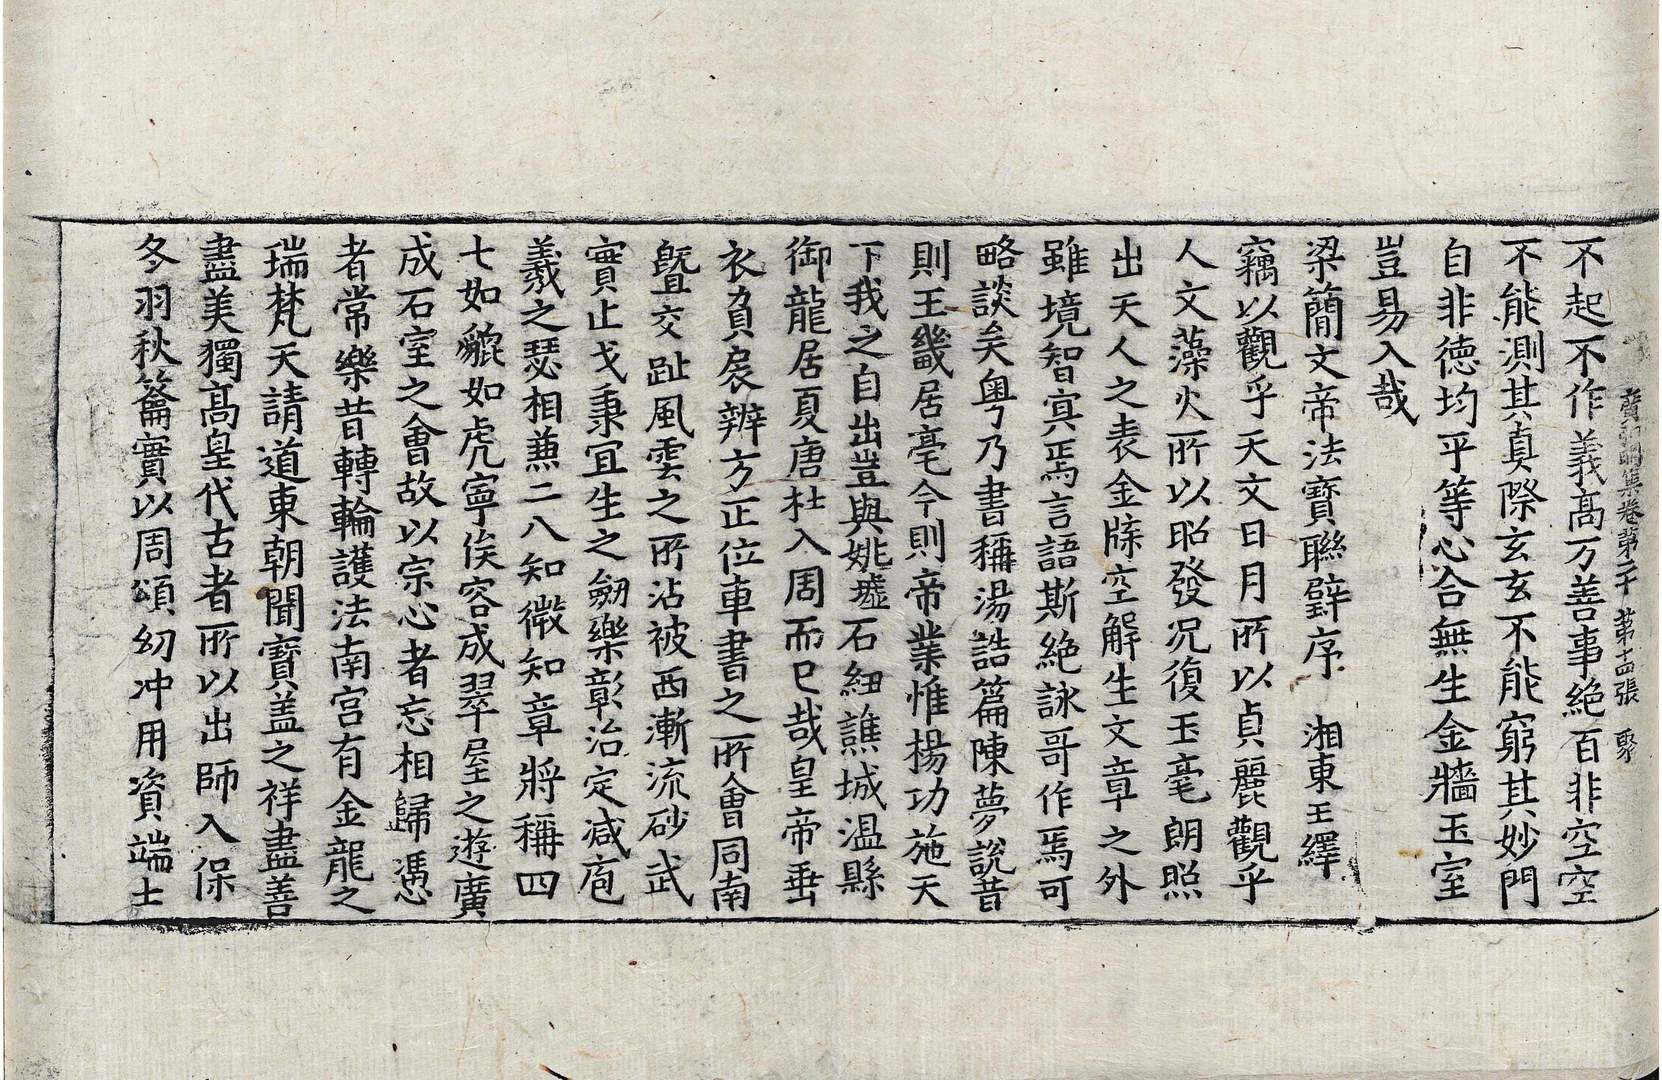 廣弘明集卷第二十 第十四張 聚
不起不作義高万善事絶百非空空
不能測其真際玄玄不能窮其妙門
自非德均平等心合無生金牆玉室
豈易入哉
梁簡文帝法寶聯璧序 湘東王繹
竊以觀乎天文日月所以貞麗觀乎
人文藻火所以昭發况復玉毫朗照
出天人之表金牒空解生文章之外
雖境智寘焉言語斯絶詠哥作焉可
略談矣粤乃書稱湯誥篇陳夢説昔
則王畿居亳今則帝業惟楊功施天
下我之自出豈與姚墟石紐譙城温縣
御龍居夏唐杜入周而已哉皇帝垂
衣負扆辨方正位車書之所會同南
曁交趾風雲之所沾被西漸流砂武
實止戈秉宜生之劒樂彰治定減庖
羲之瑟相兼二八知微知章將稱四
七如貔如虎寧俟容成翠屋之遊廣
成石室之會故以宗心者忘相歸憑
者常樂昔轉輪護法南宮有金龍之
瑞梵天請道東朝聞寶盖之祥盡善
盡美獨高皇代古者所以出師入保
冬羽秋籥實以周頌幼冲用資端士